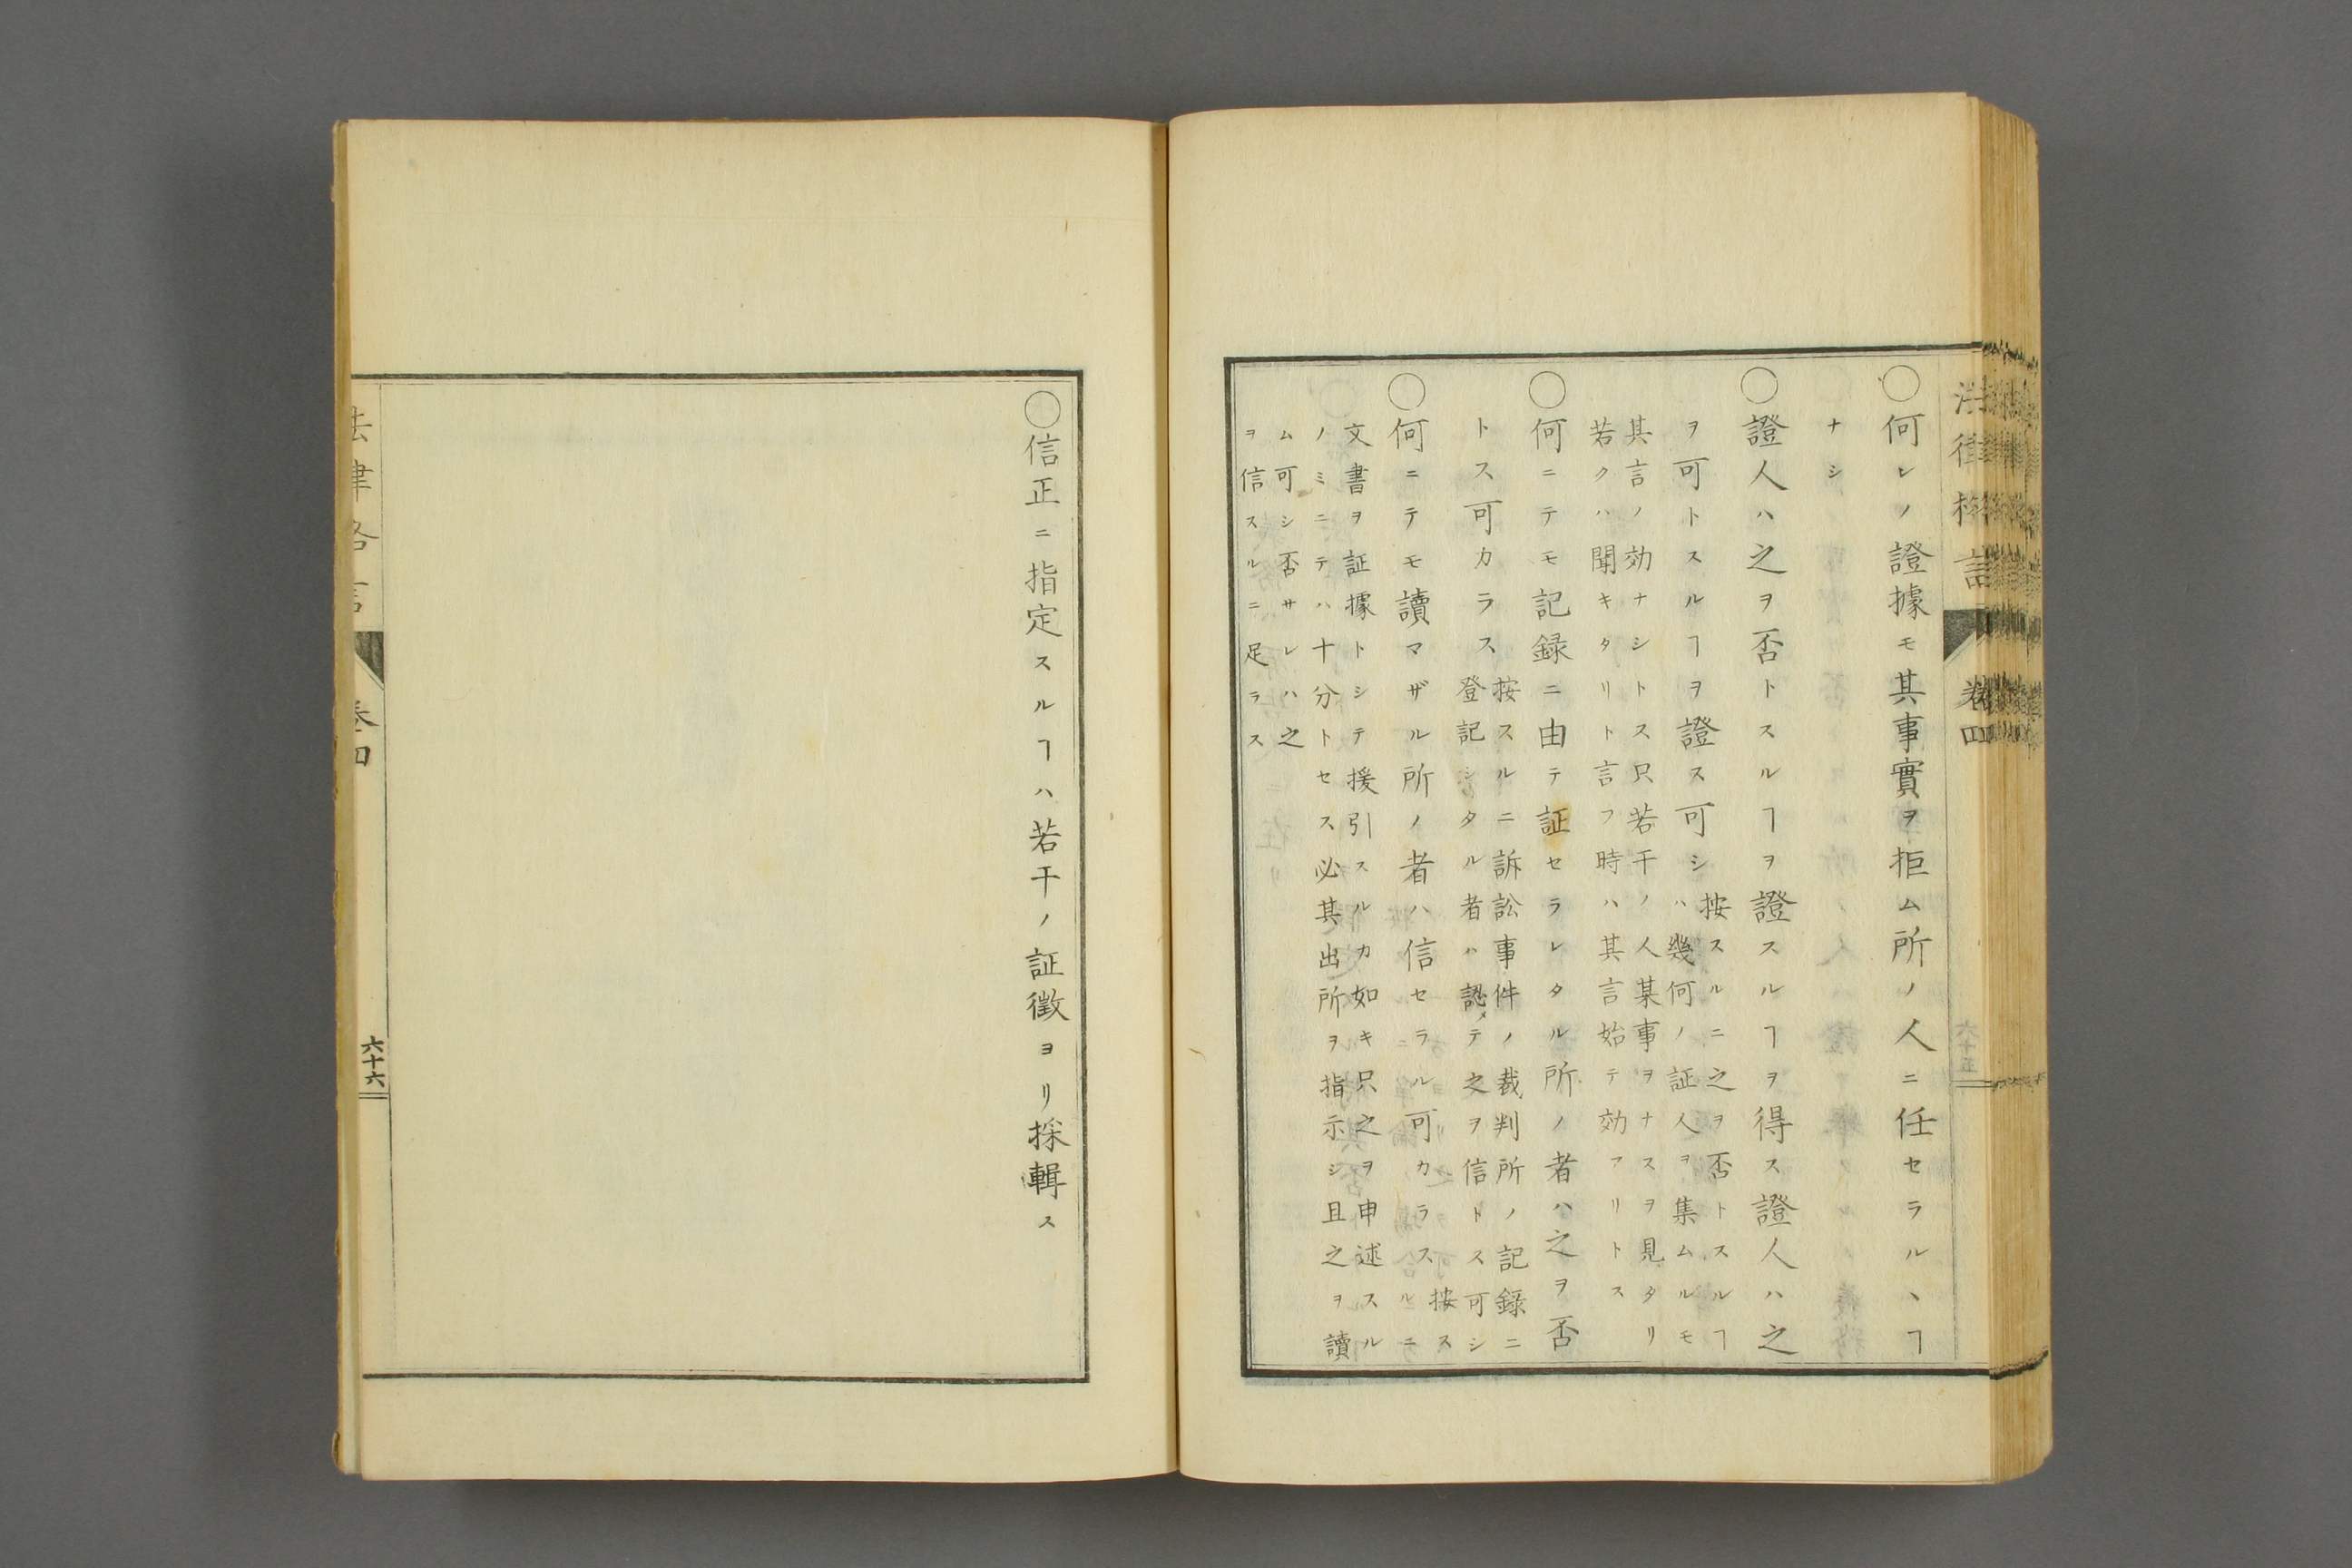 〇何レノ證據モ其事實ヲ拒ム所ノ人ニ任セラルヽヿ
ナシ
〇證人ハ之ヲ否トスルヿヲ證スルヿヲ得ス證人ハ之
ヲ可トスルヿヲ證ス可シ
按スルニ之ヲ否トスルヿ
ハ幾何ノ証人ヲ集ムルモ
其言ノ効ナシトス只若干ノ人某事ヲナスヲ見タリ
若クハ聞キタリト言フ時ハ其言始テ効アリトス
〇何ニテモ記録ニ由テ証セラレタル所ノ者ハ之ヲ否
トス可カラス
按スルニ訴訟事件ノ裁判所ノ記録ニ
登記シタル者ハ認メテ之ヲ信トス可シ
〇何ニテモ讀マザル所ノ者ハ信セラル可カラス
按ス
ルニ
文書ヲ証據トシテ援引スルカ如キ只之ヲ申述スル
ノミニテハ十分トセス必其出所ヲ指示シ且之ヲ讀
ム可シ否サレハ之
ヲ信スルニ足ラス
卷四
〇信正ニ指定スルヿハ若干ノ証徴ヨリ採輯ス
六十六